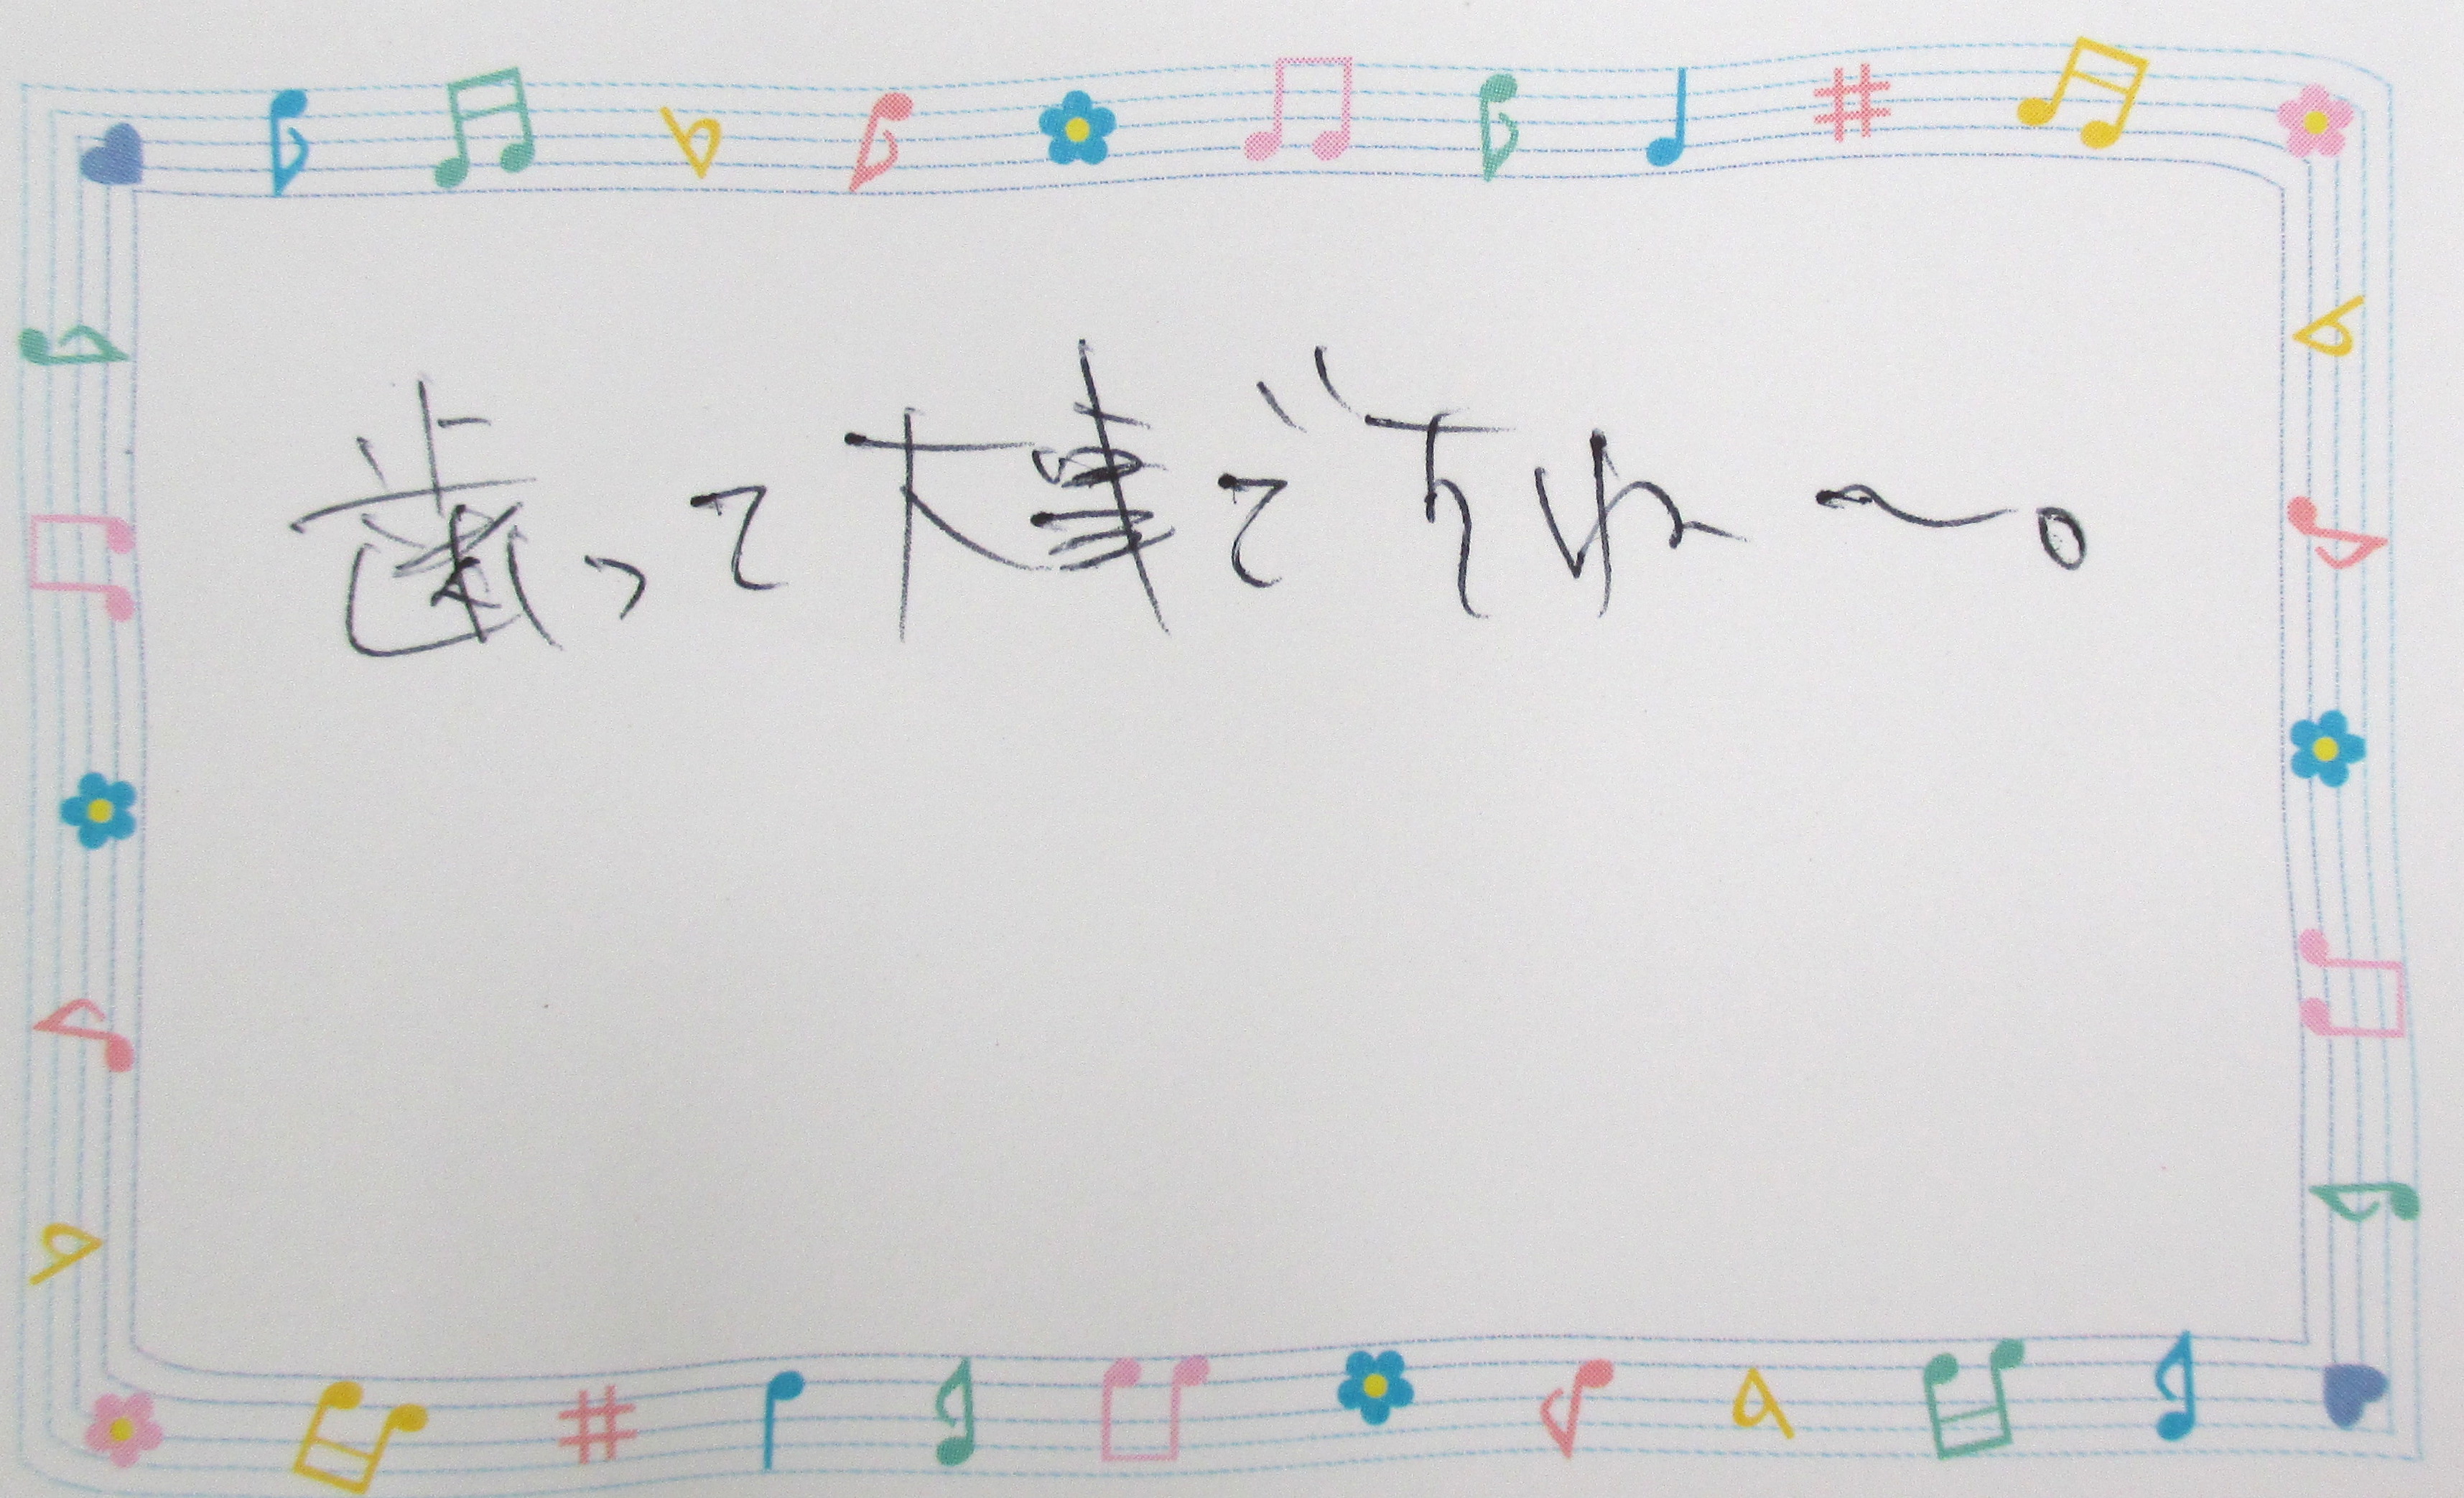 歯って大事ですね〜。